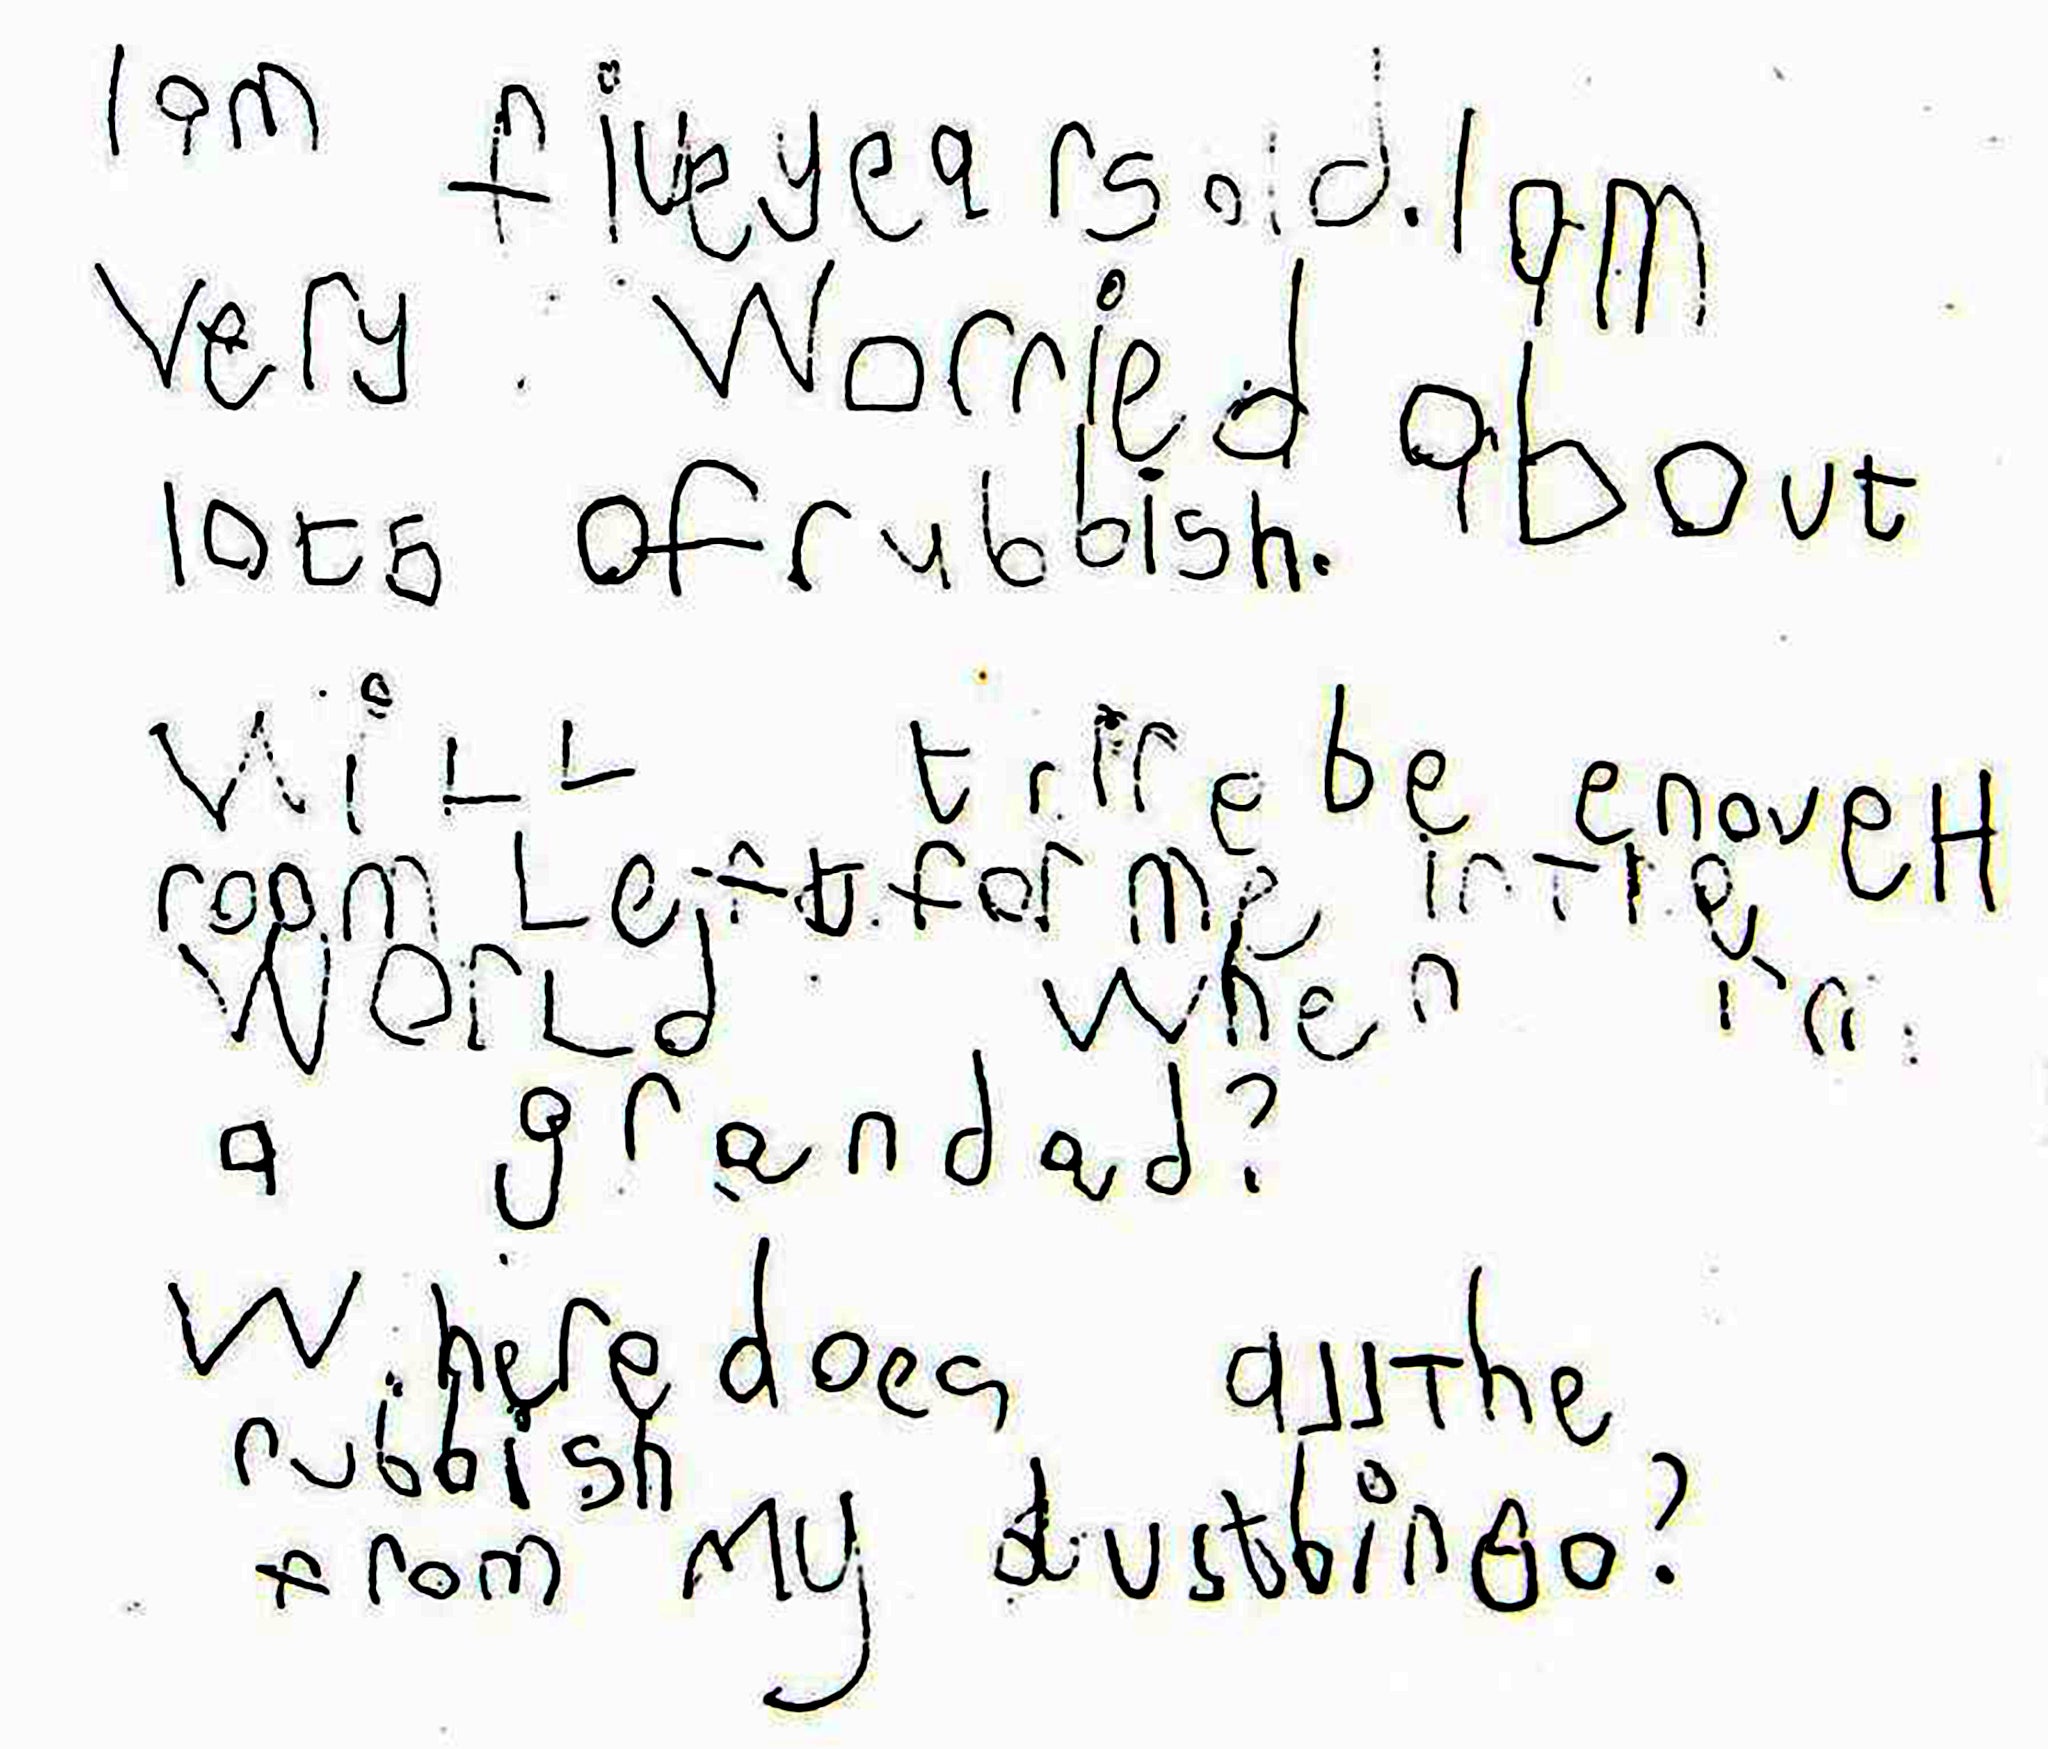 I am five years old. I am
very worried about
lots of rubbish.
WiLL there be enough
room Left for me in the
WorLd when i'm
a grandad?
Where does all The
rubbish
from My dustbin Go?